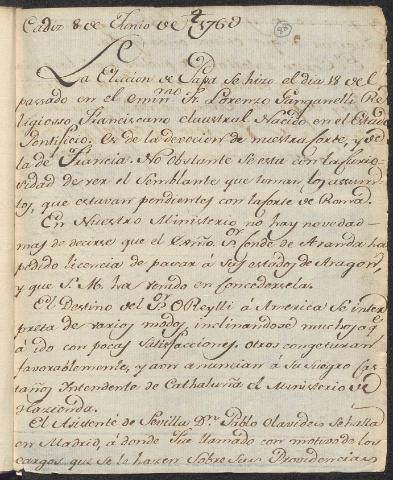 Cadiz 8 de Junio de 1769
(80)
La Eleccion de Papa se hizo el dia 18 del
passado en el eminmo Fr. Lorenzo Ganganelli Re-
ligiosso Franciscano claustral Nacido en el Estado
Pontificio. Es de la devocion de nuestra Corte, y de
la de Francia. No obstante se esta con la curio-
vidad de ver el Semblante que toman los assum-
tos, que estavan pendientes con la Corte de Roma.
En Nuestro Ministerio no hay novedad
mas de decirse que el Exmo Sr. Conde de Aranda ha
pedido licencia de pacar á sus estados de Aragon,
y que S. M. ha venido en concedersela.
El Destino del Sr. OReylli á America se inter
preta de varios modos, inclinandose muchos á q
á ido con pocas satisfacciones, otros congeturan
favorablemente, y aun anuncian á su suegro Cas
taños Intendente de Cathaluña el Ministerio de
Hazienda.
El Asistente de Sevilla Dn. Pablo Olavides se halla
en Madrid, á donde fue llamado con motivo de los
cargos que se le hazen sobre sus Providencias